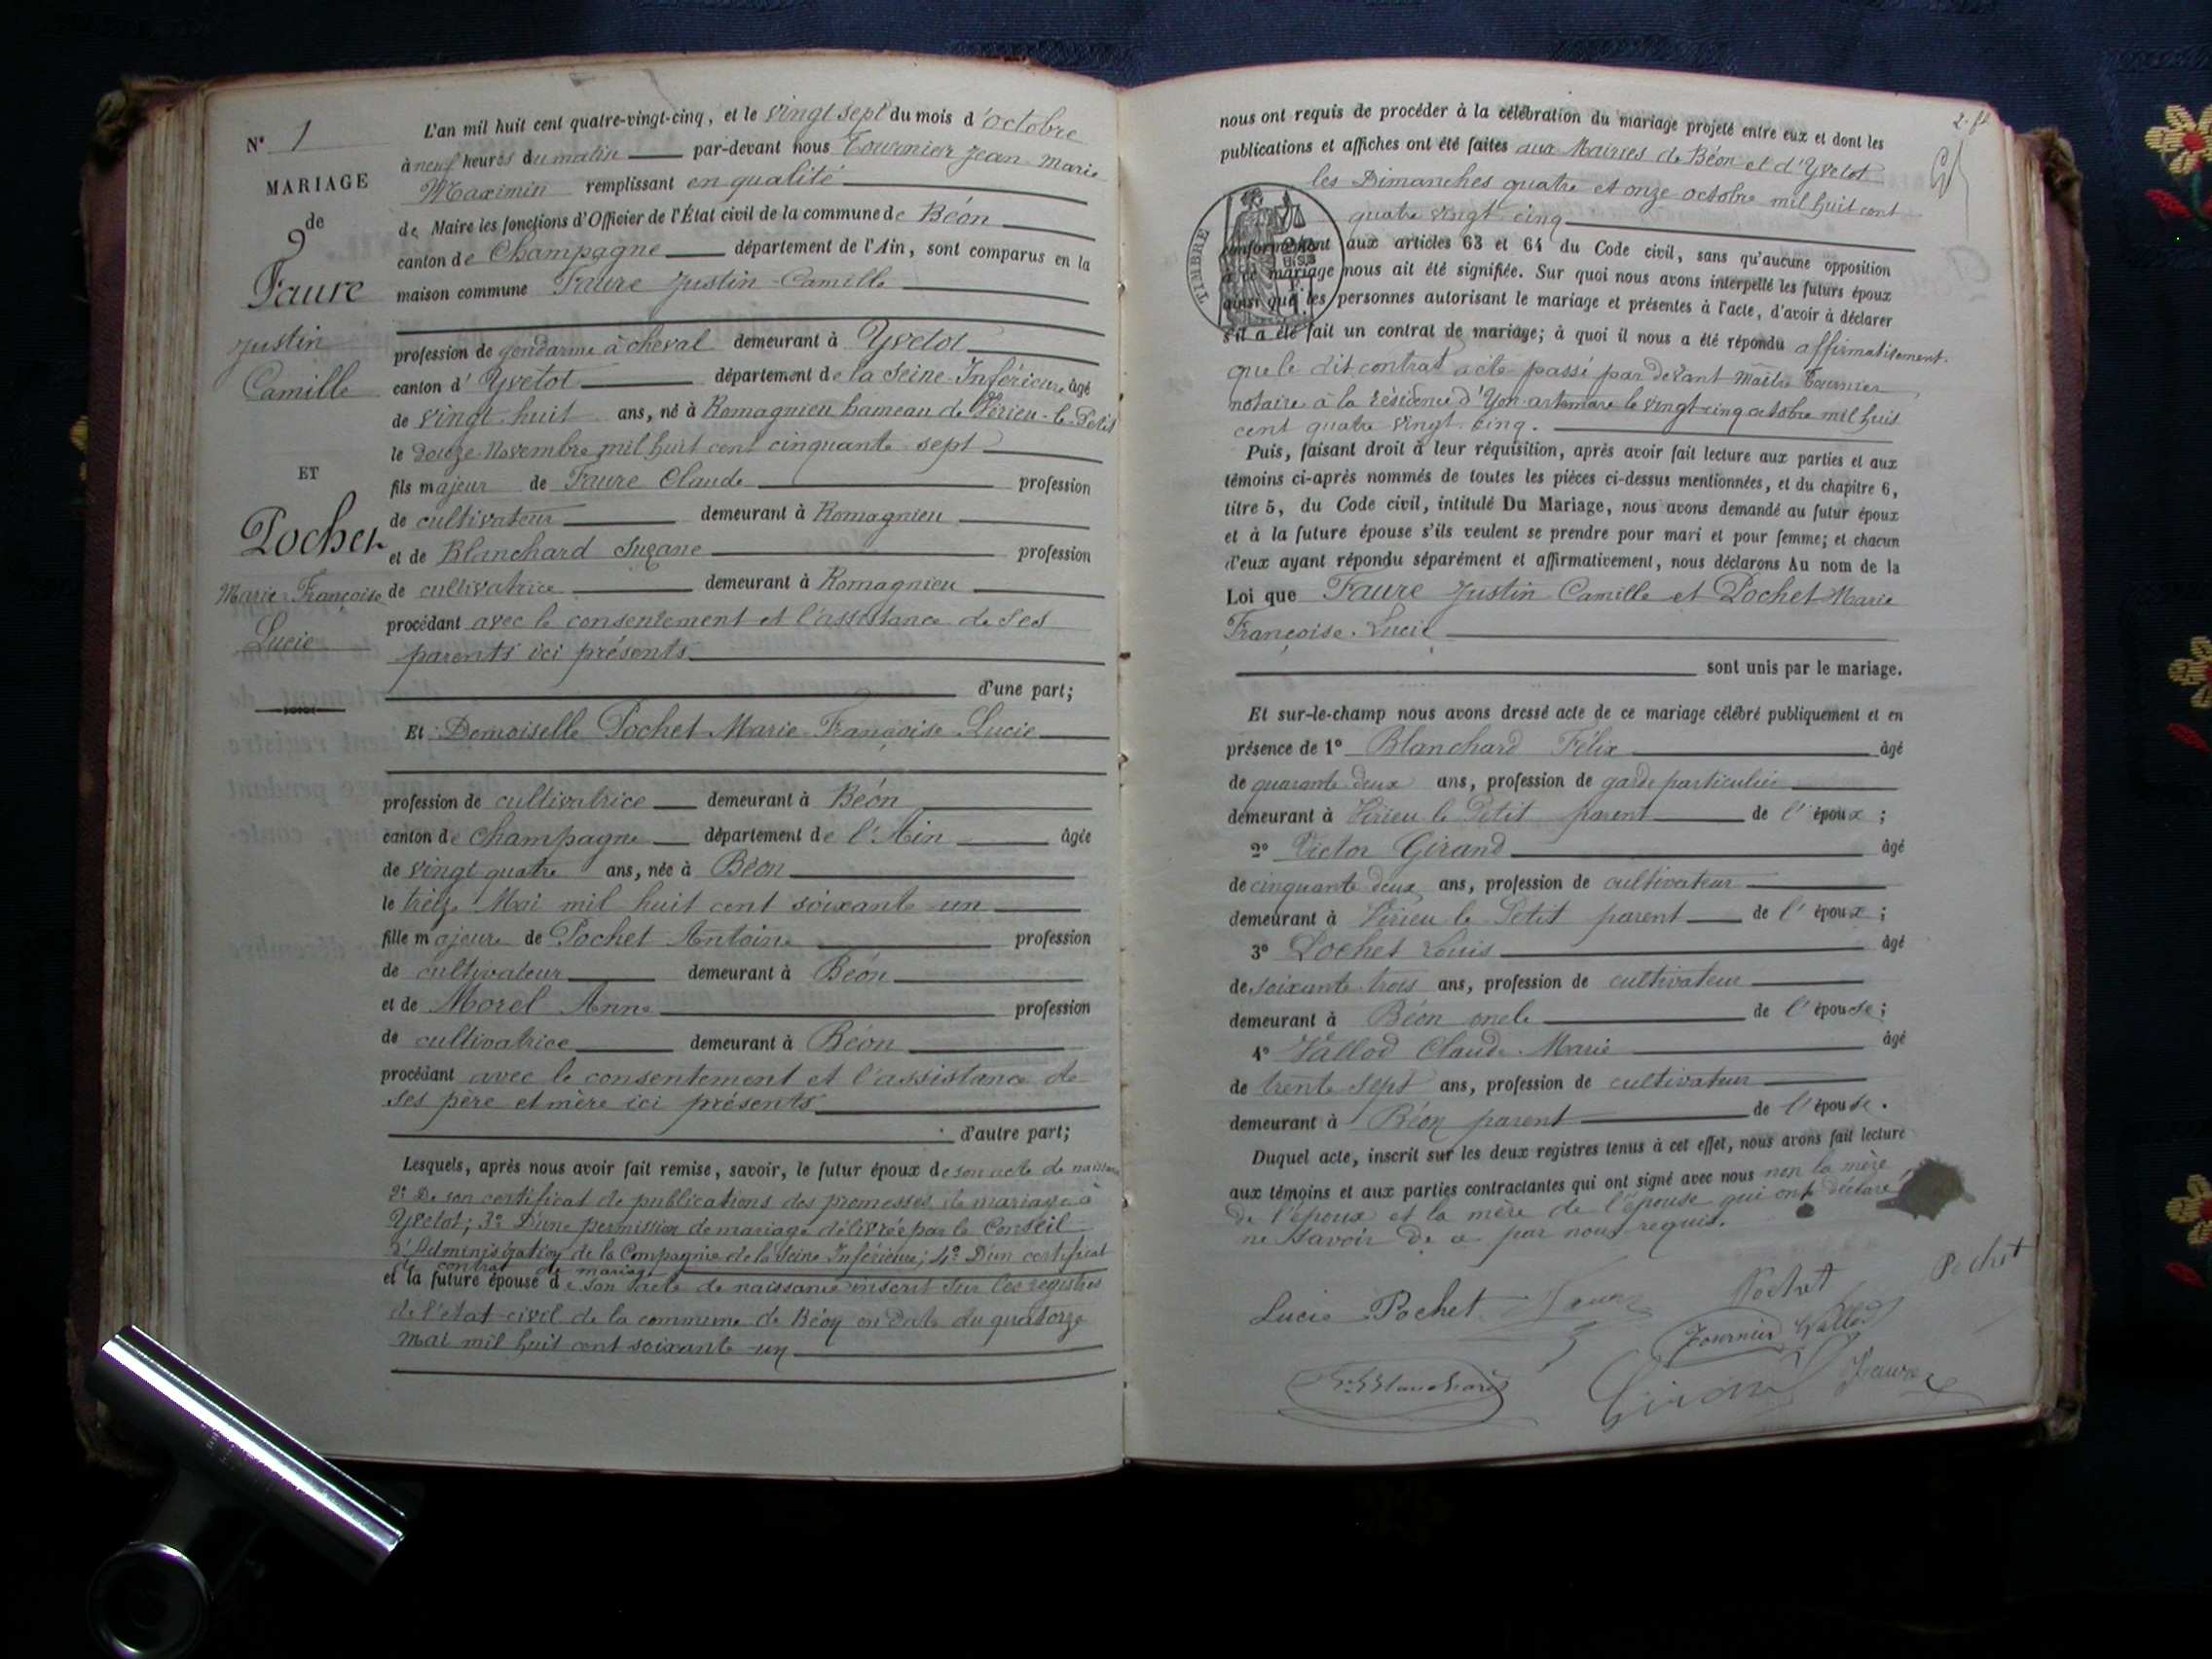 N° 1
MARIAGE
de
Faure
Justin
Camille
ET
Pochet
Marie Françoise
Lucie
L'an mil huit cent quatre-vingt-cinq, et le vingt sept du mois d'octobre
à neuf heures du matin par-devant nous Tournier Jean Marie
Maximin remplissant en qualité
de Maire les fonctions d'Officier de l'État civil de la commune de Béon
canton de Champagne département de l'Ain, sont comparus en la
maison commune Faure Justin Camille
profession de gendarme à cheval demeurant à Yvetot
canton d'Yvetot département de la Seine Inférieure âgé
de vingt huit ans, né à Romagnieu hameau de Vérieu-le-Petit
le douze Novembre mil huit cent cinquante sept
fils majeur de Faure Claude profession
de cultivateur demeurant à Romagnieu
et de Blanchard Suzane profession
de cultivatrice demeurant à Romagnieu
procédant avec le consentement et l'assistance de ses
parents ici présents
d'une part;
Et Demoiselle Pochet Marie Françoise Lucie
profession de cultivatrice demeurant à Béon
canton de Champagne département de l'Ain âgée
de vingt quatre ans, née à Béon
le treize Mai mil huit cent soixante un
fille majeure de Pochet Antoine profession
de cultivateur demeurant à Béon
et de Morel Anne profession
de cultivatrice demeurant à Béon
procédant avec le consentement et l'assistance de
ses père et mère ici présents
d'autre part;
Lesquels, après nous avoir fait remise, savoir, le futur époux de son acte de naissance
2° De son certificat de publications des promesses de mariage à
Yvetot; 3° D'une permission de mariage délivrée par le Conseil
d'Administration de la Compagnie de la Seine Inférieure; 4° D'un certificat
de contrat de mariage
et la future épouse de son acte de naissance inscrit sur les registres
de l'état civil de la commune de Béon en date du quatorze
Mai mil huit cent soixante un
nous ont requis de procéder à la célébration du mariage projeté entre eux et dont les
publications et affiches ont été faites aux Mairies de Béon et d'Yvetot
les Dimanches quatre et onze octobre mil huit cent
quatre vingt cinq
TIMBRE
conformément aux articles 63 et 64 du Code civil, sans qu'aucune opposition
à ce mariage nous ait été signifiée. Sur quoi nous avons interpellé les futurs époux
ainsi que les personnes autorisant le mariage et présentes à l'acte, d'avoir à déclarer
s'il a été fait un contrat de mariage; à quoi il nous a été répondu affirmativement
que le dit contrat a été passé par devant Maître Tournier
notaire à la résidence d'Yon-artemare le vingt cinq octobre mil huit
cent quatre vingt cinq.
Puis, faisant droit à leur réquisition, après avoir fait lecture aux parties et aux
témoins ci-après nommés de toutes les pièces ci-dessus mentionnées, et du chapitre 6,
titre 5, du Code civil, intitulé Du Mariage, nous avons demandé au futur époux
et à la future épouse s'ils veulent se prendre pour mari et pour femme; et chacun
d'eux ayant répondu séparément et affirmativement, nous déclarons Au nom de la
Loi que Faure Justin Camille et Pochet Marie
Françoise Lucie
sont unis par le mariage.
Et sur-le-champ nous avons dressé acte de ce mariage célébré publiquement et en
présence de 1° Blanchard Félix âgé
de quarante deux ans, profession de garde particulier
demeurant à Virieu le Petit parent de l'époux;
2° Victor Girand âgé
de cinquante deux ans, profession de cultivateur
demeurant à Virieu le Petit parent de l'époux;
3° Pochet Louis âgé
de soixante trois ans, profession de cultivateur
demeurant à Béon oncle de l'épouse;
4° Vallod Claude Marie âgé
de trente sept ans, profession de cultivateur
demeurant à Béon parent de l'épouse.
Duquel acte, inscrit sur les deux registres tenus à cet effet, nous avons fait lecture
aux témoins et aux parties contractantes qui ont signé avec nous non la mère
de l'époux et la mère de l'épouse qui ont déclaré
ne savoir de ce par nous requis.
Lucie Pochet Faure Pochet Pochet
Tournier Vallod
Blanchard Girand Faure